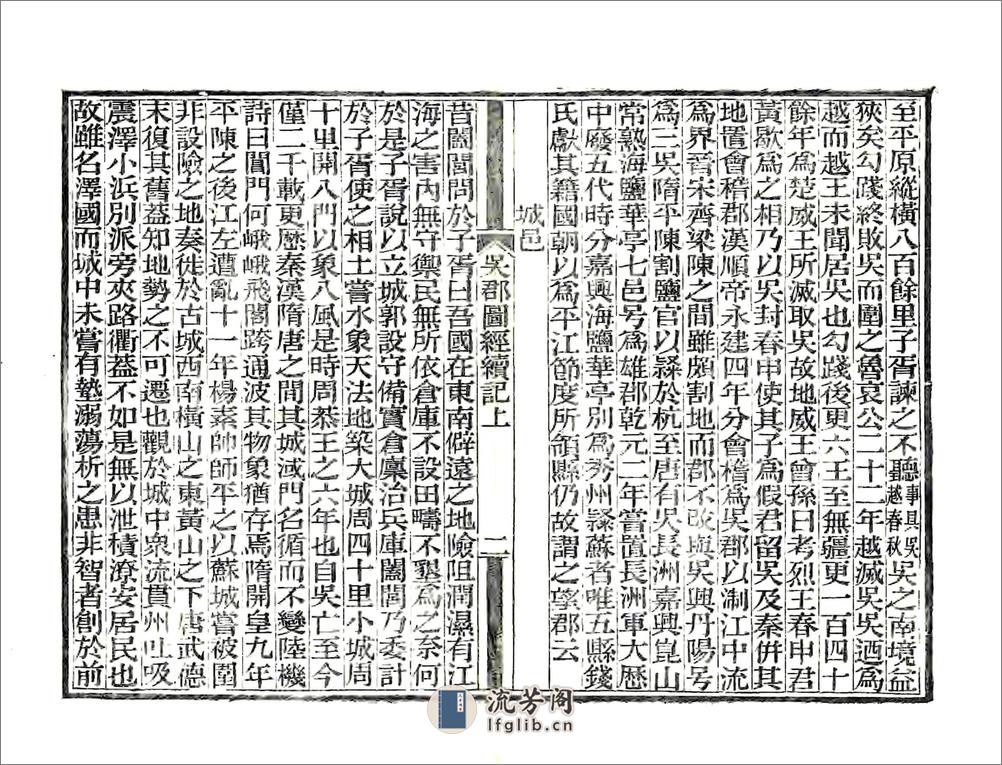 至平原縱橫八百餘里子胥諫之不聽事具吳越春秋吳之南境益
狹矣勾踐終敗吳而圍之魯哀公二十二年越滅吳吳迺爲
越而越王未聞居吳也勾踐後更六王至無疆更一百四十
餘年爲楚威王所滅取吳故地威王曾孫曰考烈王春申君
黃歇爲之相乃以吳封春申使其子爲假君留吳及秦併其
地置會稽郡漢順帝永建四年分會稽爲吳郡以制江中流
爲界晉宋齊梁陳之間雖頗割地而郡不改與吳興丹陽号
爲三吳隋平陳割鹽官以緣於杭至唐有吳長洲嘉興崑山
常熟海鹽華亭七邑号爲雄郡乾元二年嘗置長洲軍大歷
中廢五代時分嘉興海鹽華亭別爲秀州繇蘇者唯五縣錢
氏獻其籍國朝以爲平江節度所領縣仍故謂之望郡云
城邑
吳郡圖經續記上 二
昔闔閭問於子胥曰吾國在東南僻遠之地險阻潤濕有江
海之害內無守禦民無所依倉庫不設田疇不墾爲之奈何
於是子胥說以立城郭設守備實倉廩治兵庫闔閭乃委計
於子胥使之相土嘗水象天法地築大城周四十里小城周
十里開八門以象八風是時周恭王之六年也自吳亡至今
僅二千載更歷秦漢隋唐之間其城洫門名循而不變陸機
詩曰閶門何峨峨飛閣跨通波其物象猶存焉隋開皇九年
平陳之後江左遭亂十一年楊素帥師平之以蘇城嘗被圍
非設險之地奏徙於古城西南橫山之東黃山之下唐武德
末復其舊蓋知地勢之不可遷也觀於城中衆流貫州吐吸
震澤小浜別派旁夾路衢蓋不如是無以泄積潦安居民也
故雖名澤國而城中未嘗有墊溺蕩析之患非智者創於前
流芳阁
lfglib.cn